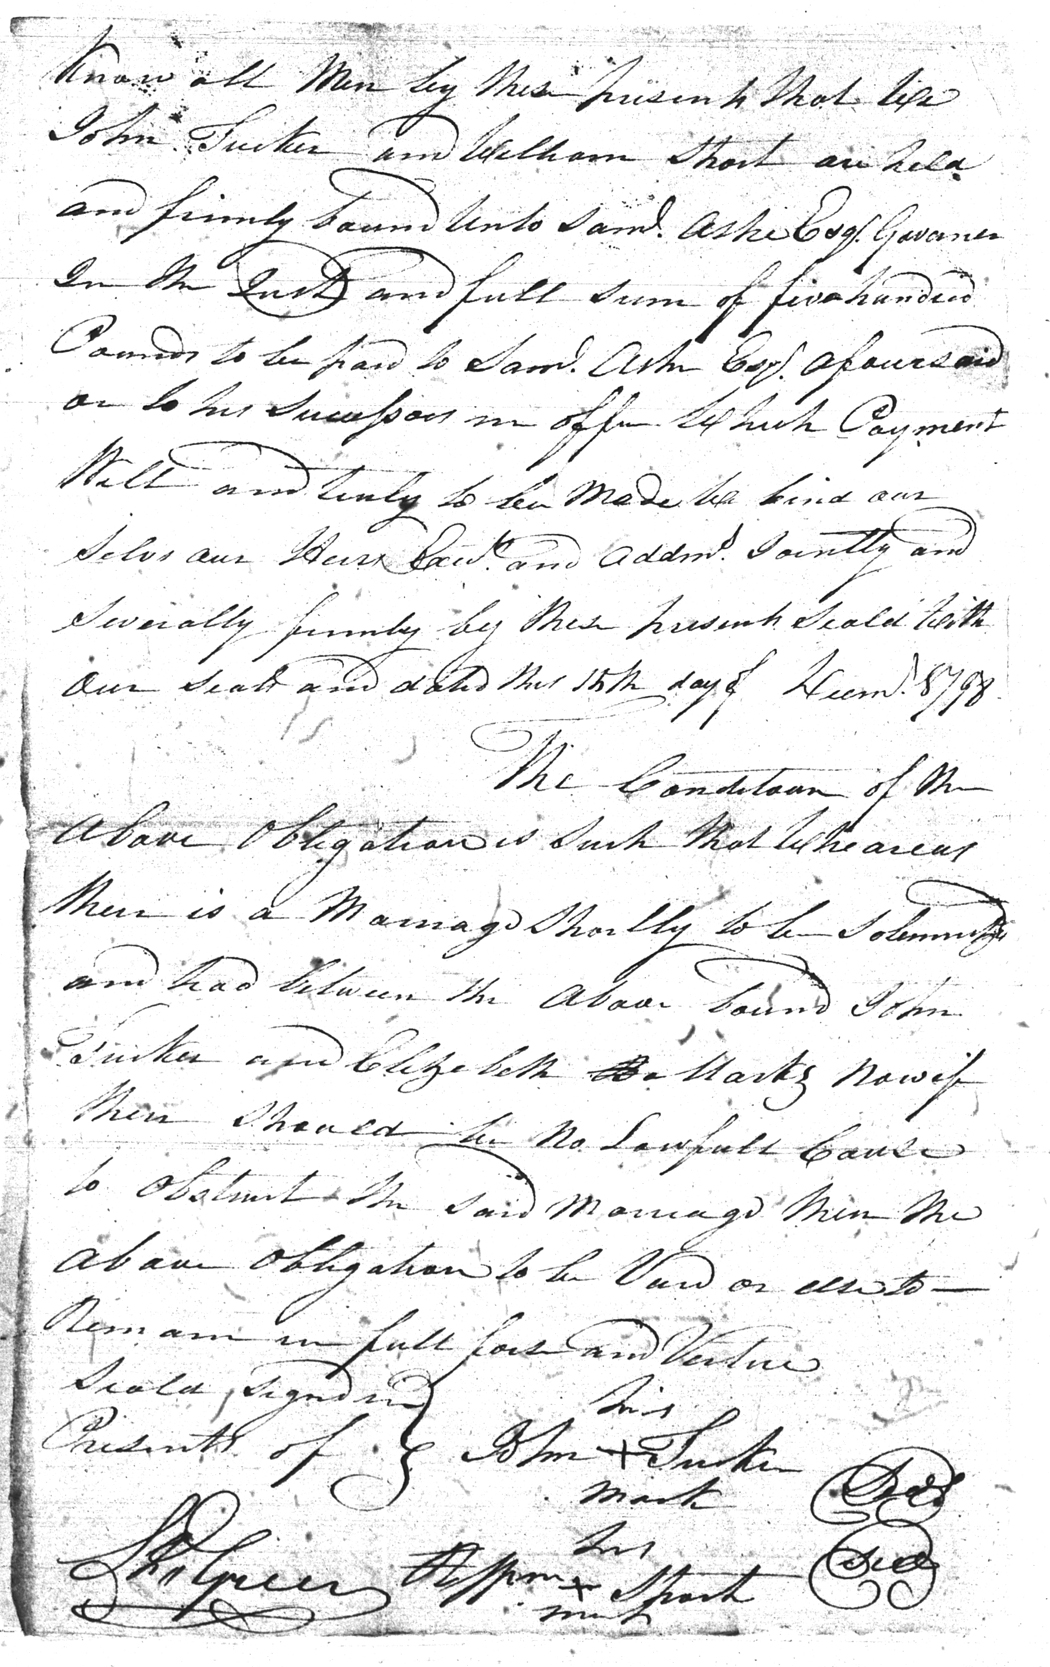 Know all Men by these presents that We
John Tucker and William Short are held
and firmly bound Unto Saml. Ashe Esqr. Governer
In the Just and full sum of five hundred
Pounds to be paid to Saml. Ashe Esqr. afouresaid
or to his Successors in offie Which Payment
Well and truly to be Made We bind our
Selvs our Heirs Exut. and Addmd. Jointly and
Severally firmly by these presents Seald With
Our Seals and dated this 15th day of 1798
The Condetoun of the
Above Obligation is Such that Wheareas
there is a Marriage Shortly to be Solemnized
and had between the Above bound John
Tucker and Elizebeth Now if
there Should be No Lawfull Cause
to Obstruct the Said Marreage then the
Above Obligation to be Void or else to
Remain in full force and Vertue
Seald Signd in
Presents of
his
John + Tucker
mark
Seal
his
+ Short
mark
Seal